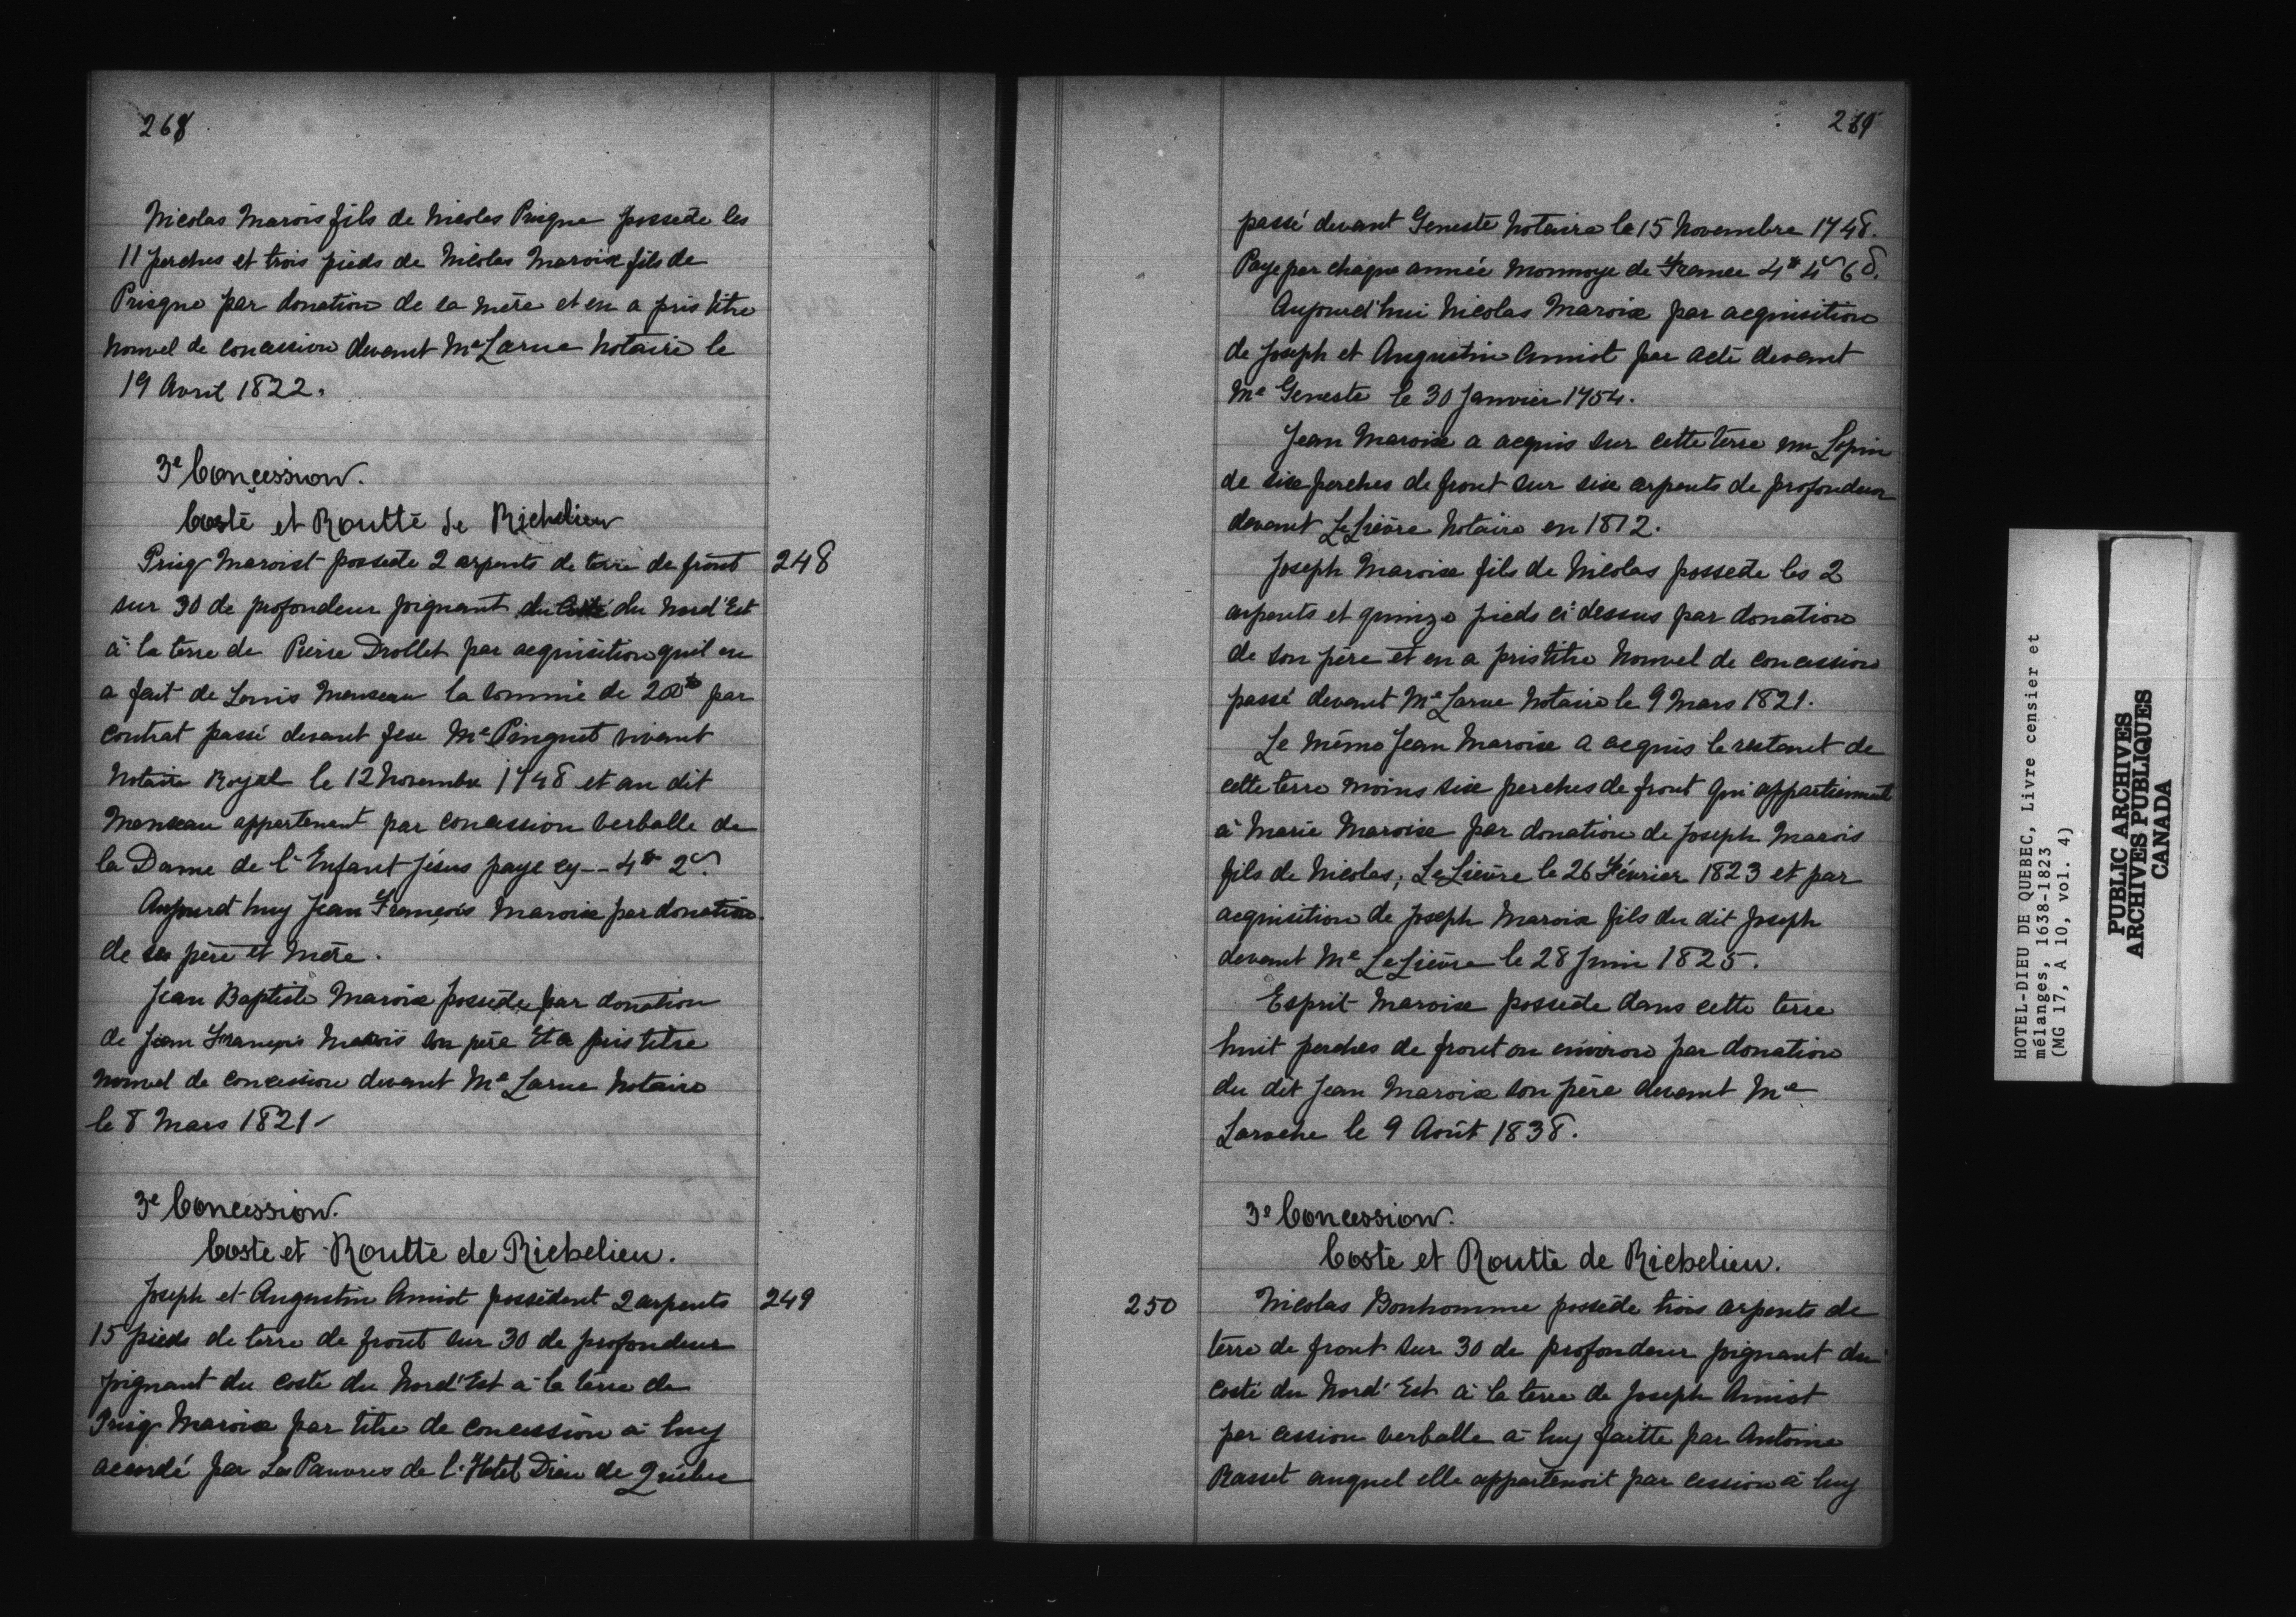 268
Nicolas Marois fils de Nicolas Prisque possede les
11 perches et trois pieds de Nicolas Maroix fils de
Prisque par donation de sa mère et en a pris titre
nouvel de concession devant Me Larue Notaire le
19 Avril 1822.
3e Concession.
Costé et Routte de Richelieu
248
Prisq Maroist possede 2 arpents de terre de front
sur 30 de profondeur joignant du Costé du Nord'Est
à la terre de Pierre Drollet par acquisition quil en
a fait de Louis Manseau la somme de 200# par
contrat passé devant feu Me Pinguet vivant
Notaire Royal le 12 Novembre 1748 et au dit
Manseau appartenant par concession verballe de
la Dame de l'Enfant Jésus paye cy -- 4# 2s.
Aujourd huy Jean François Maroix par donation
de ses père et mère.
Jean Baptiste Maroix possède par donation
de Jean François Marois son père Et a pris titre
nouvel de concession devant Me Larue Notaire
le 8 Mars 1821
3e Concession.
Coste et Routte de Richelieu.
249
Joseph et Augustin Amiot possèdent 2 arpents
15 pieds de terre de front sur 30 de profondeur
joignant du costé du Nord'Est à la terre de
Prisq Maroix par titre de concession à luy
acordé par Les Pauvres de l'Hotel Dieu de Québec
269
passé devant Geneste Notaire le 15 Novembre 1748.
Paye par chaque année Monnoye de France 4# 4s 6d.
Aujourd'hui Nicolas Maroix par acquisition
de Joseph et Augustin Amiot par acte devant
Me Geneste le 30 Janvier 1754.
Jean Maroix a acquis sur cette terre un Lopin
de six perches de front sur six arpents de profondeur
devant LeLièvre Notaire en 1812.
Joseph Maroix fils de Nicolas possede les 2
arpents et quinze pieds ci-dessus par donation
de son père et en a pris titre Nouvel de concession
passé devant Me Larue Notaire le 9 Mars 1821.
Le même Jean Maroix a acquis le restant de
cette terre moins six perches de front qui appartiennent
à Marie Maroix par donation de Joseph Marois
fils de Nicolas, LeLièvre le 26 Février 1823 et par
acquisition de Joseph Maroix fils du dit Joseph
devant Me LeLièvre le 28 Juin 1825.
Esprit Maroix possède dans cette terre
huit perches de front ou environ par donation
du dit Jean Maroix son père devant Me
Laroche le 9 Août 1838.
3e Concession.
Coste et Routte de Richelieu.
250
Nicolas Bonhomme possède trois arpents de
terre de front sur 30 de profondeur joignant du
costé du Nord'Est à la terre de Joseph Amiot
par cession verballe à luy faitte par Antoine
Rasset auquel elle appartenoit par cession à luy
HOTEL-DIEU DE QUEBEC, Livre censier et
mélanges, 1638-1823
(MG 17, A 10, vol. 4)
PUBLIC ARCHIVES
ARCHIVES PUBLIQUES
CANADA